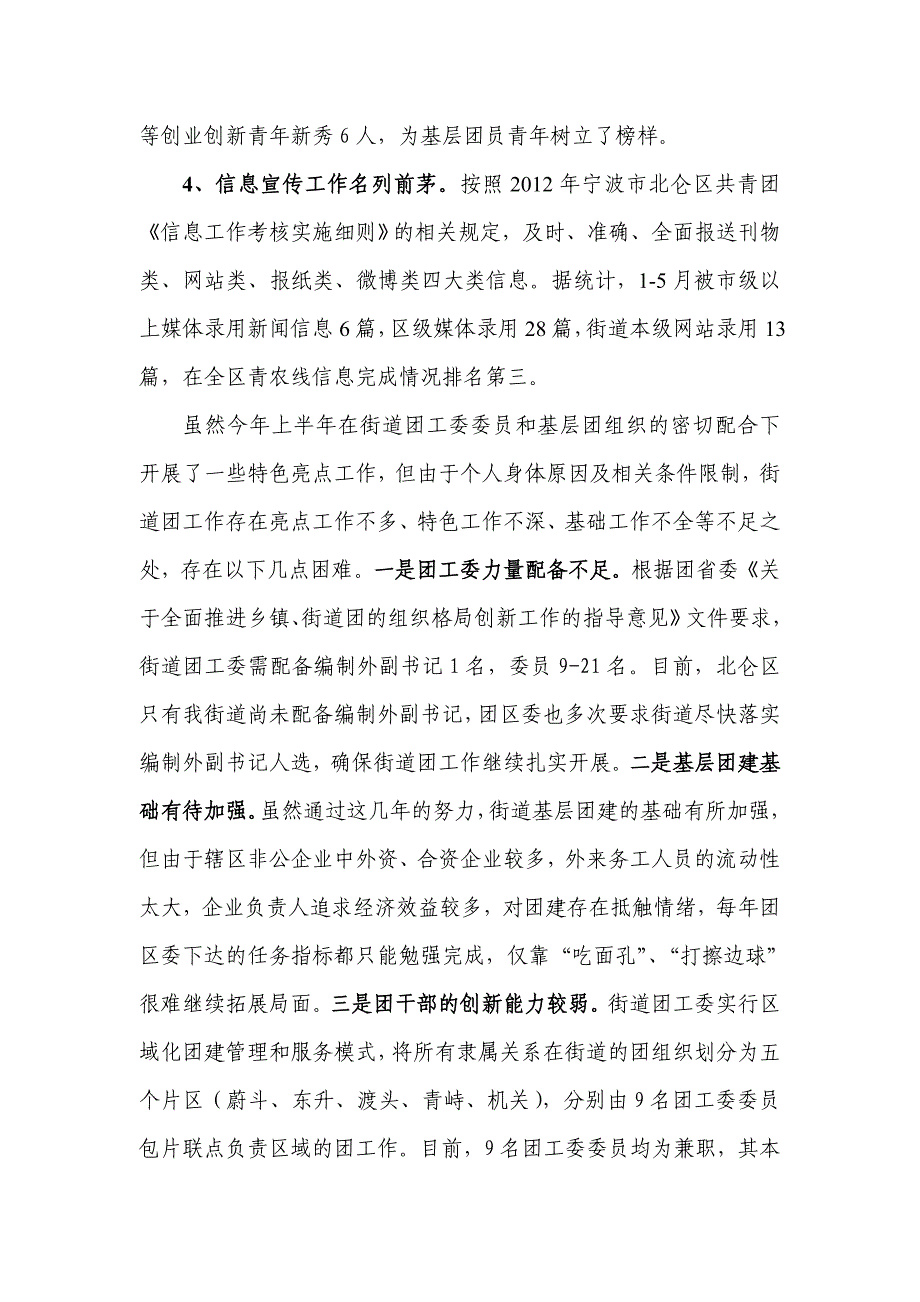 等创业创新青年新秀 6 人，为基层团员青年树立了榜样。
4、信息宣传工作名列前茅。按照 2012 年宁波市北仑区共青团
《信息工作考核实施细则》的相关规定，及时、准确、全面报送刊物
类、网站类、报纸类、微博类四大类信息。据统计，1-5 月被市级以
上媒体录用新闻信息 6 篇，区级媒体录用 28 篇，街道本级网站录用 13
篇，在全区青农线信息完成情况排名第三。
虽然今年上半年在街道团工委委员和基层团组织的密切配合下
开展了一些特色亮点工作，但由于个人身体原因及相关条件限制，街
道团工作存在亮点工作不多、特色工作不深、基础工作不全等不足之
处，存在以下几点困难。一是团工委力量配备不足。根据团省委《关
于全面推进乡镇、街道团的组织格局创新工作的指导意见》文件要求，
街道团工委需配备编制外副书记 1 名，委员 9-21 名。目前，北仑区
只有我街道尚未配备编制外副书记，团区委也多次要求街道尽快落实
编制外副书记人选，确保街道团工作继续扎实开展。二是基层团建基
础有待加强。虽然通过这几年的努力，街道基层团建的基础有所加强，
但由于辖区非公企业中外资、合资企业较多，外来务工人员的流动性
太大，企业负责人追求经济效益较多，对团建存在抵触情绪，每年团
区委下达的任务指标都只能勉强完成，仅靠“吃面孔”、“打擦边球”
很难继续拓展局面。三是团干部的创新能力较弱。街道团工委实行区
域化团建管理和服务模式，将所有隶属关系在街道的团组织划分为五
个片区（蔚斗、东升、渡头、青峙、机关），分别由 9 名团工委委员
包片联点负责区域的团工作。目前，9 名团工委委员均为兼职，其本